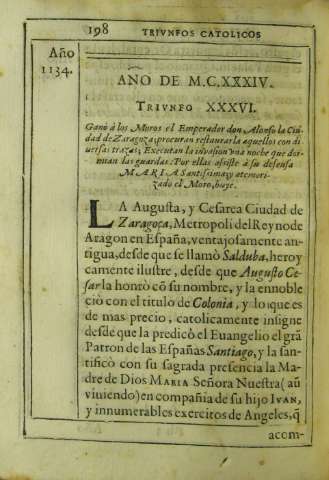 198 TRIVNFOS CATOLICOS
Año
1134.
AÑO DE M.C.XXXIV.
TRIVNFO XXXVI.
Ganò à los Moros el Emperador don Alonso la Ciu
dad de Zaragoza; procuran restaurarla aquellos con di
uersas trazas; Executan la inuasion vna noche que dor-
mian las guardas: Por ellas assiste à su defensa
MARIA Santissima, y atemori-
zado el Moro, huye.
LA Augusta, y Cesarea Ciudad de
Zaragoça, Metropoli del Reyno de
Aragon en España, ventajosamente an-
tigua, desde que se llamò Salduba, heroy
camente ilustre, desde que Augusto Ce-
sar la honrò cõ su nombre, y la ennoble
ciò con el titulo de Colonia, y lo que es
de mas precio, catolicamente insigne
desde que la predicò el Euangelio el grã
Patron de las Españas Santiago, y la san-
tificò con su sagrada presencia la Ma-
dre de Dios MARIA Señora Nuestra (aũ
viuiendo) en compañia de su hijo IVAN,
y innumerables exercitos de Angeles, q̃
acom-